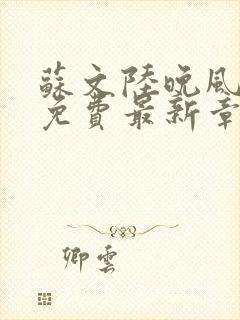 蘇文陸晚風
免費最新章
卿雲